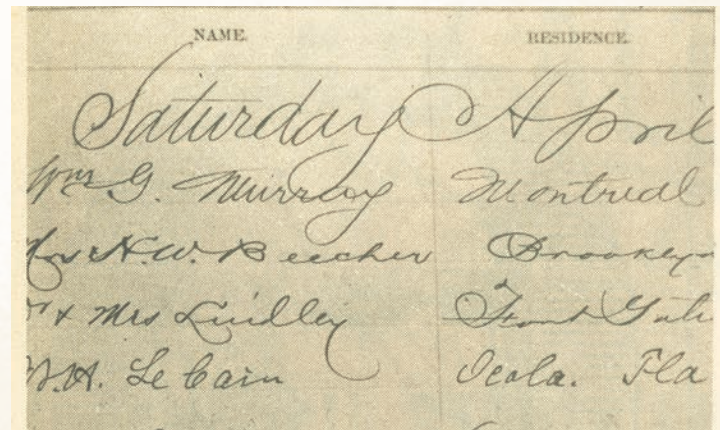 NAME. RESIDENCE.
Saturday April
Wm G. Murray Montreal
Mrs H.W. Beecher Brooklyn
& Mrs Lindley Front
W.H. Le Cain Ocala. Fla